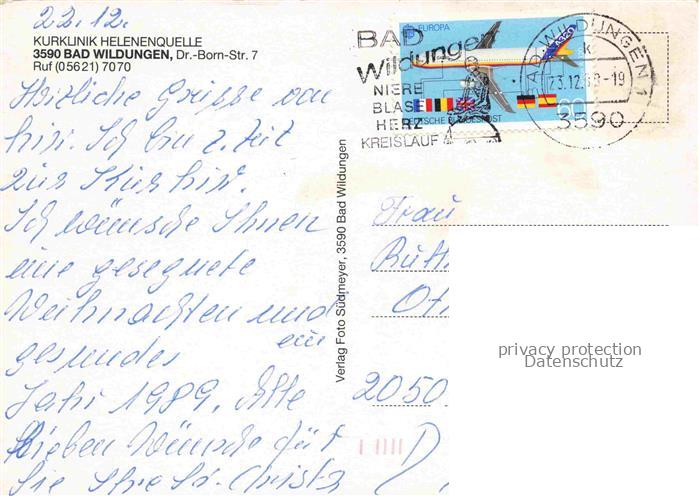 22.12.
KURKLINIK HELENENQUELLE
3590 BAD WILDUNGEN, Dr.-Born-Str. 7
Ruf (05621) 7070
Herzliche Grüsse von
hier. Ich bin z. Zeit
zur Kur hier.
Ich wünsche Ihnen
eine gesegnete
Weihnachten und
ein
gesundes
Jahr 1989. Alle
lieben Wünsche für
Sie Ihre
Verlag Foto Südmeyer, 3590 Bad Wildungen
EUROPA
60
DEUTSCHE BUNDESPOST
BAD
Wildungen
NIERE
BLASE
HERZ
KREISLAUF
BAD WILDUNGEN 1
23.12.88-19
3590
Frau
2050
privacy protection
Datenschutz